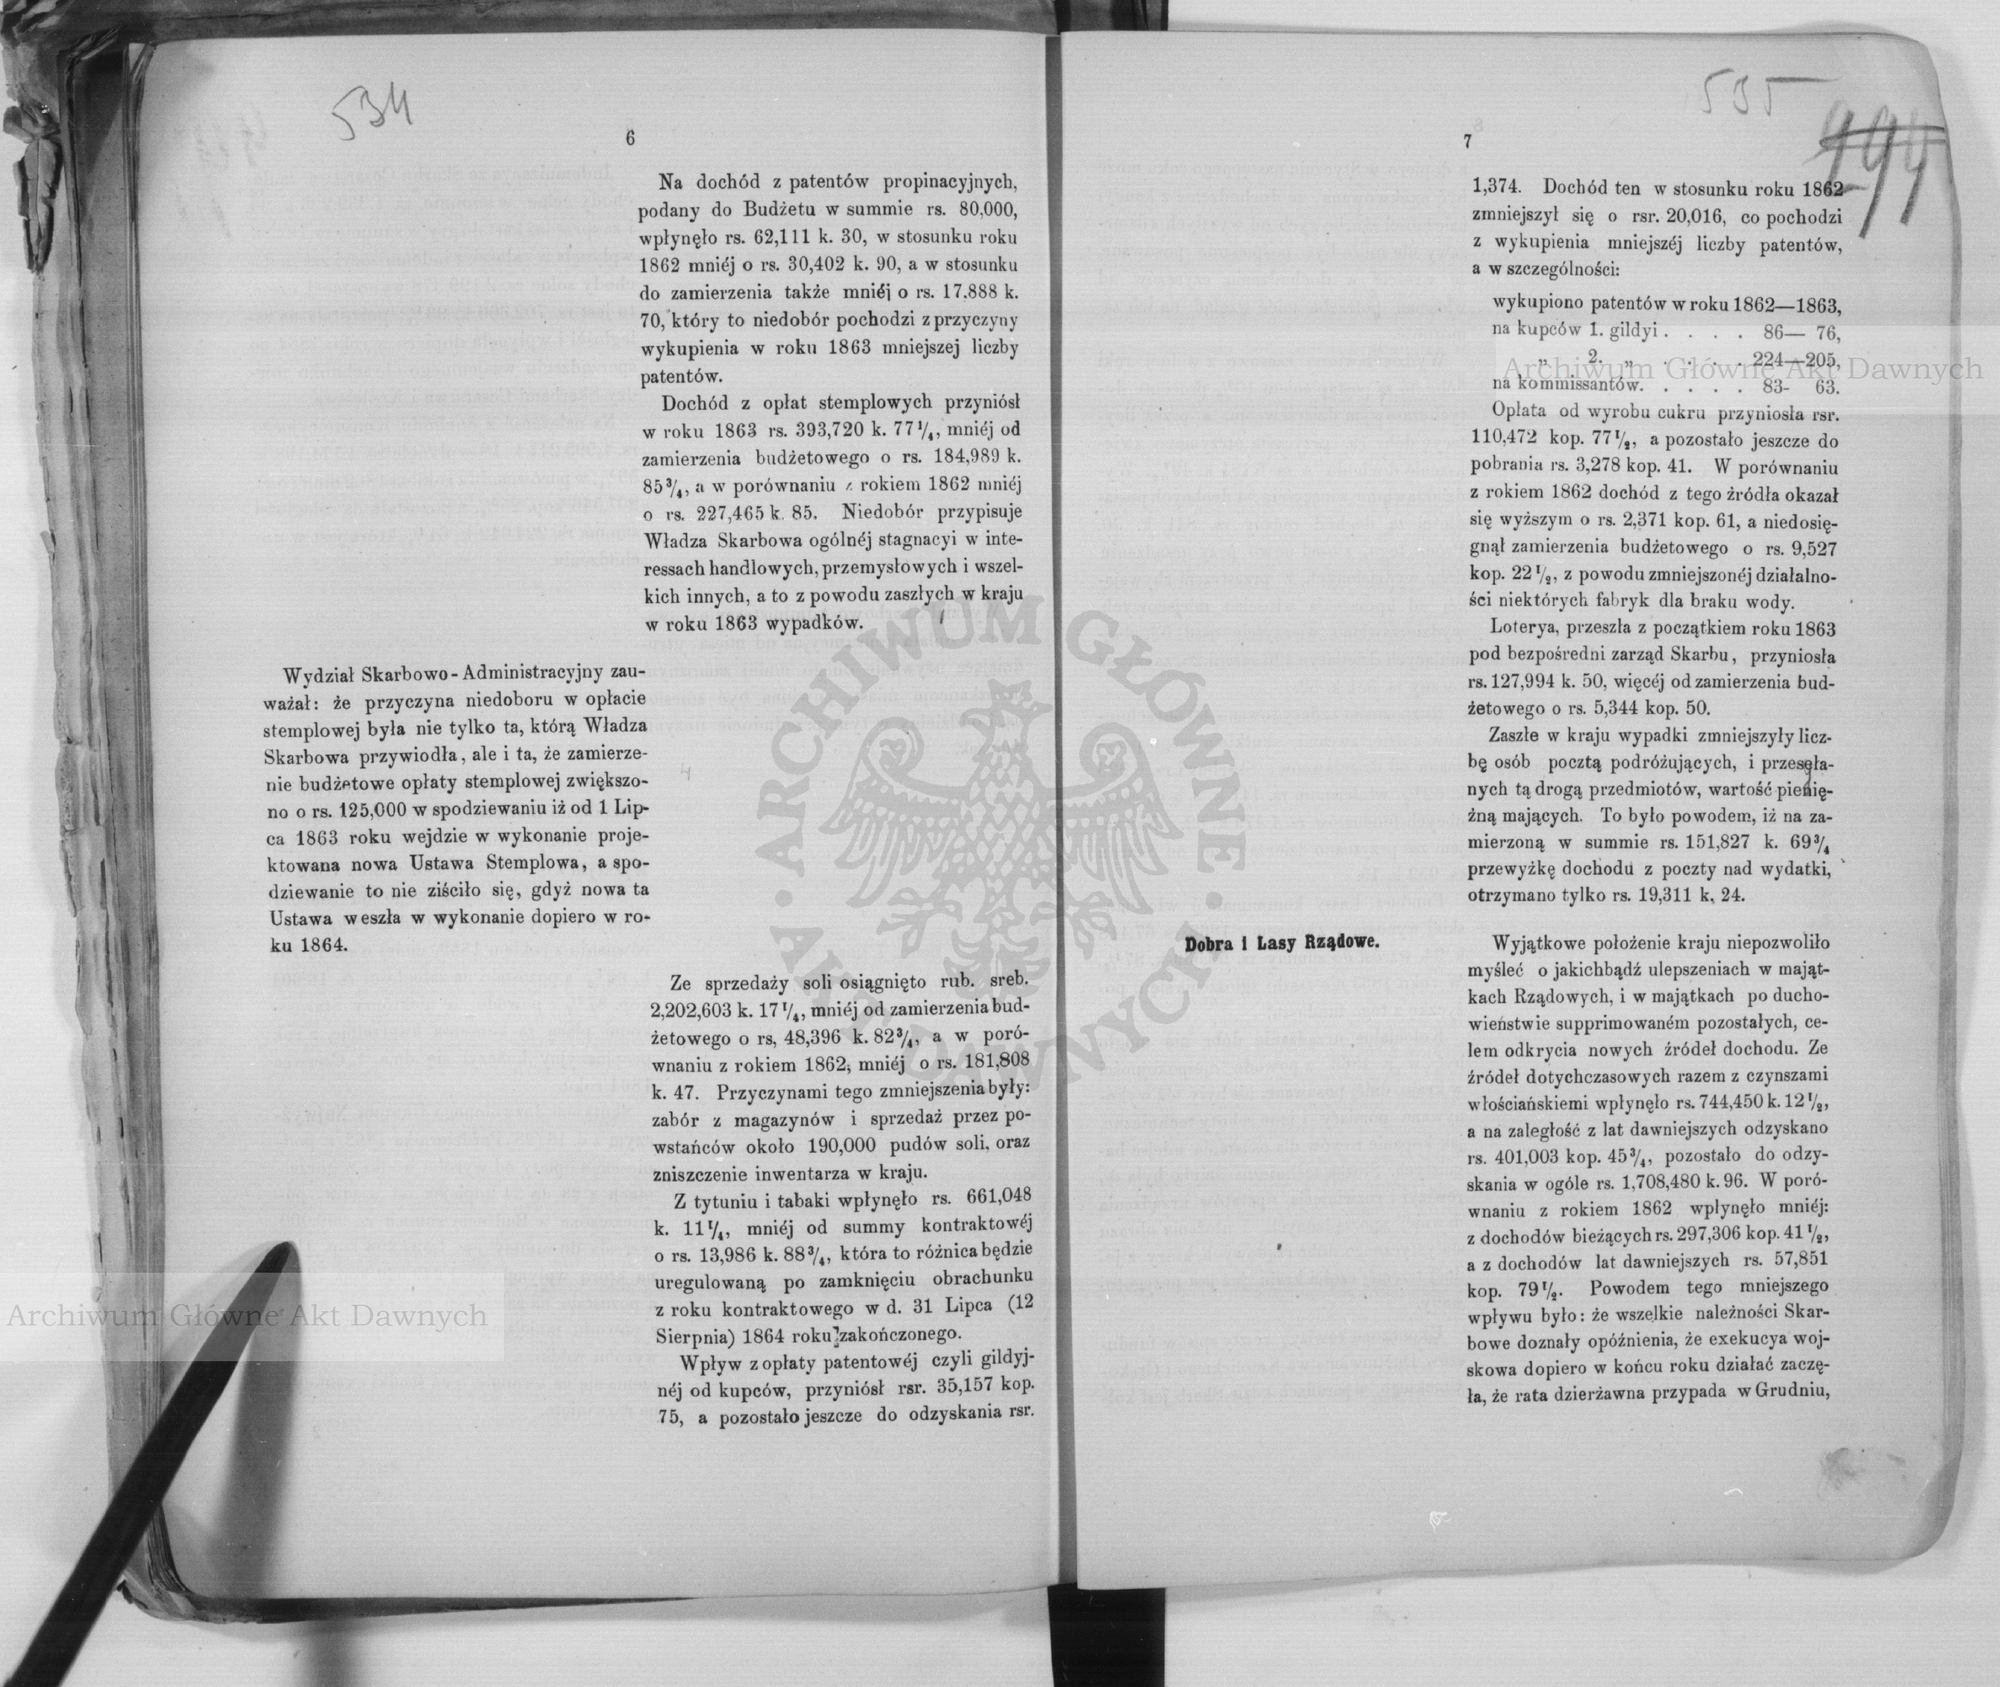 534
6
Na dochód z patentów propinacyjnych,
podany do Budżetu w summie rs. 80,000,
wpłynęło rs. 62,111 k. 30, w stosunku roku
1862 mniéj o rs. 30,402 k. 90, a w stosunku
do zamierzenia także mniéj o rs. 17.888 k.
70, który to niedobór pochodzi z przyczyny
wykupienia w roku 1863 mniejszej liczby
patentów.
Dochód z opłat stemplowych przyniósł
w roku 1863 rs. 393,720 k. 77 1/4, mniéj od
zamierzenia budżetowego o rs. 184,989 k.
85 3/4, a w porównaniu z rokiem 1862 mniéj
o rs. 227,465 k. 85. Niedobór przypisuje
Władza Skarbowa ogólnéj stagnacyi w inte-
ressach handlowych, przemysłowych i wszel-
kich innych, a to z powodu zaszłych w kraju
w roku 1863 wypadków.
Wydział Skarbowo-Administracyjny zau-
ważał: że przyczyna niedoboru w opłacie
stemplowej była nie tylko ta, którą Władza
Skarbowa przywiodła, ale i ta, że zamierze-
nie budżetowe opłaty stemplowej zwiększo-
no o rs. 125,000 w spodziewaniu iż od 1 Lip-
ca 1863 roku wejdzie w wykonanie proje-
ktowana nowa Ustawa Stemplowa, a spo-
dziewanie to nie ziściło się, gdyż nowa ta
Ustawa weszła w wykonanie dopiero w ro-
ku 1864.
Ze sprzedaży soli osiągnięto rub. sreb.
2,202,603 k. 17 1/4, mniéj od zamierzenia bud-
żetowego o rs, 48,396 k. 82 3/4, a w poró-
wnaniu z rokiem 1862, mniéj o rs. 181,808
k. 47. Przyczynami tego zmniejszenia były:
zabór z magazynów i sprzedaż przez po-
wstańców około 190,000 pudów soli, oraz
zniszczenie inwentarza w kraju.
Z tytuniu i tabaki wpłynęło rs. 661,048
k. 11 1/4, mniéj od summy kontraktowéj
o rs. 13,986 k. 88 3/4, która to różnica będzie
uregulowaną po zamknięciu obrachunku
z roku kontraktowego w d. 31 Lipca (12
Sierpnia) 1864 roku zakończonego.
Wpływ z opłaty patentowéj czyli gildyj-
néj od kupców, przyniósł rsr. 35,157 kop.
75, a pozostało jeszcze do odzyskania rsr.
535
7
1,374. Dochód ten w stosunku roku 1862
zmniejszył się o rsr. 20,016, co pochodzi
z wykupienia mniejszéj liczby patentów,
a w szczególności:
wykupiono patentów w roku 1862—1863,
na kupców 1. gildyi . . . . 86— 76,
„ 2. „ . . . . 224—205,
na kommissantów. . . . . 83- 63.
Opłata od wyrobu cukru przyniosła rsr.
110,472 kop. 77 1/2, a pozostało jeszcze do
pobrania rs. 3,278 kop. 41. W porównaniu
z rokiem 1862 dochód z tego źródła okazał
się wyższym o rs. 2,371 kop. 61, a niedosię-
gnął zamierzenia budżetowego o rs. 9,527
kop. 22 1/2, z powodu zmniejszonéj działalno-
ści niektórych fabryk dla braku wody.
Loterya, przeszła z początkiem roku 1863
pod bezpośredni zarząd Skarbu, przyniosła
rs. 127,994 k. 50, więcéj od zamierzenia bud-
żetowego o rs. 5,344 kop. 50.
Zaszłe w kraju wypadki zmniejszyły licz-
bę osób pocztą podróżujących, i przesęła-
nych tą drogą przedmiotów, wartość pienię-
żną mających. To było powodem, iż na za-
mierzoną w summie rs. 151,827 k. 69 3/4
przewyżkę dochodu z poczty nad wydatki,
otrzymano tylko rs. 19,311 k, 24.
Dobra i Lasy Rządowe.
Wyjątkowe położenie kraju niepozwoliło
myśleć o jakichbądź ulepszeniach w mająt-
kach Rządowych, i w majątkach po ducho-
wieństwie supprimowaném pozostałych, ce-
lem odkrycia nowych źródeł dochodu. Ze
źródeł dotychczasowych razem z czynszami
włościańskiemi wpłynęło rs. 744,450 k. 12 1/2,
a na zaległość z lat dawniejszych odzyskano
rs. 401,003 kop. 45 3/4, pozostało do odzy-
skania w ogóle rs. 1,708,480 k. 96. W poró-
wnaniu z rokiem 1862 wpłynęło mniéj:
z dochodów bieżących rs. 297,306 kop. 41 1/2,
a z dochodów lat dawniejszych rs. 57,851
kop. 79 1/2. Powodem tego mniejszego
wpływu było: że wszelkie należności Skar-
bowe doznały opóźnienia, że exekucya woj-
skowa dopiero w końcu roku działać zaczę-
ła, że rata dzierżawna przypada w Grudniu,
ARCHIWUM GŁÓWNE · AKT DAWNYCH ·
Archiwum Główne Akt Dawnych
Archiwum Główne Akt Dawnych